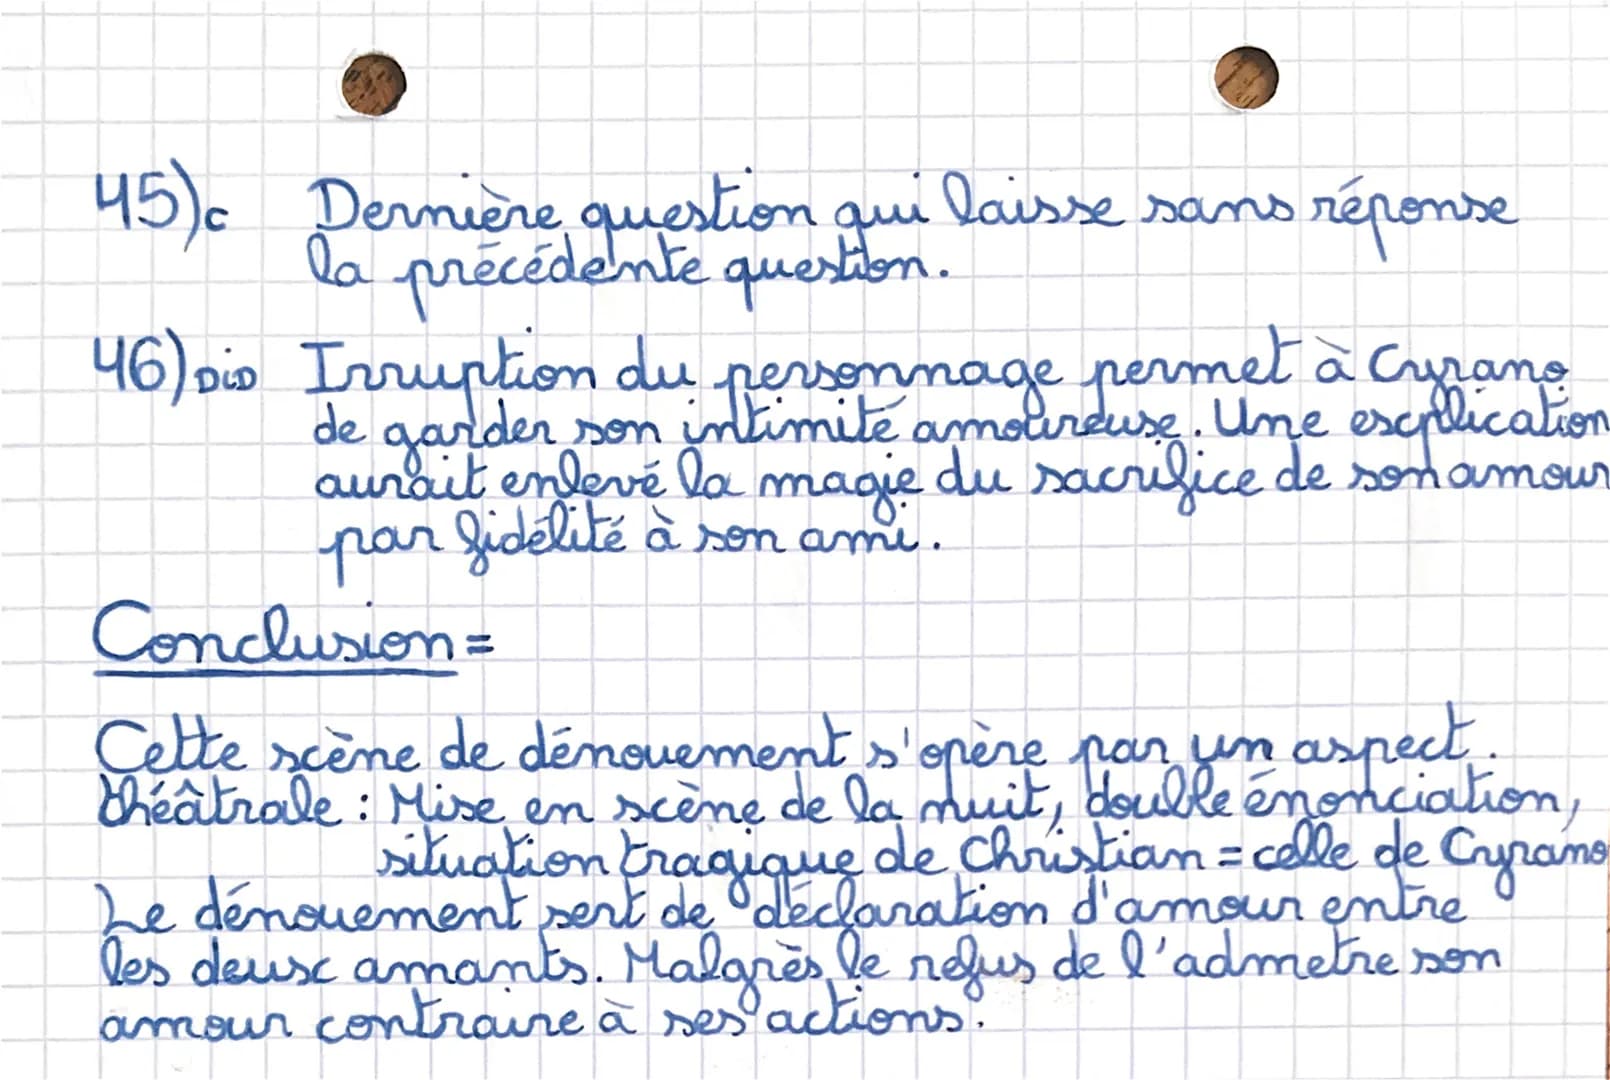 45)c Dernière question qui laisse sans réponse
la précédente question.
46) DiD Irruption du personnage permet à Cyrano
de garder son intimité amoureuse. Une explication
aurait enlevé la magie du sacrifice de son amour
par fidélité à son ami.
Conclusion =
Cette scène de dénouement s'opère par un aspect.
théâtrale : Mise en scène de la nuit, double énonciation,
situation tragique de Christian = celle de Cyrano
Le dénouement sert de déclaration d'amour entre
les deux amants. Malgrès le refus de l'admetre son
amour contraire à ses actions.